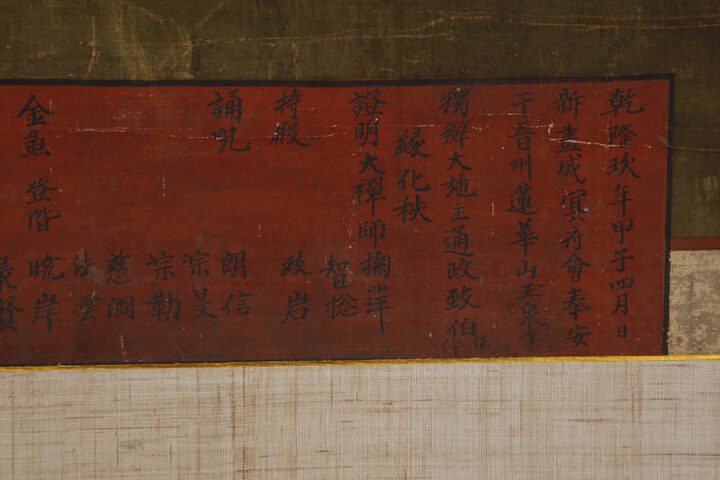 乾隆玖年甲子四月日
新畫成冥府會奉安
于晋州蓮華山玉泉寺
獨辦大施主通政致伯 保体
緣化秩
證明大禪師掬萍
智捴
持殿 政岩
誦呪 朗信
宗旻
宗勒
慈澗
法雲
金魚 登階 曉岸
賢